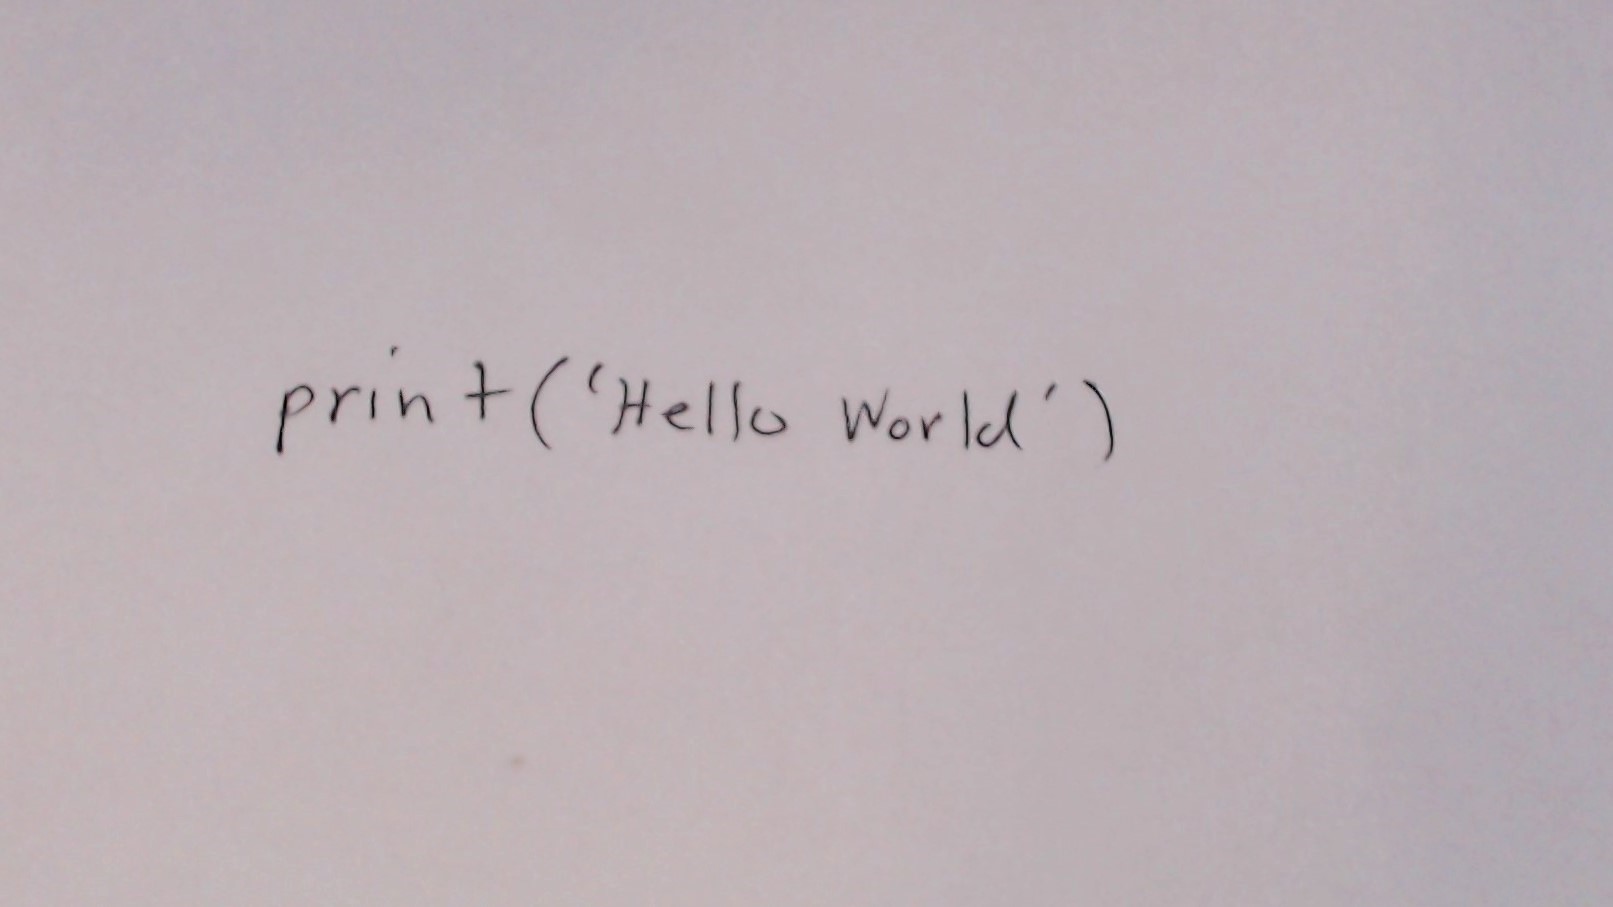 print('Hello World')